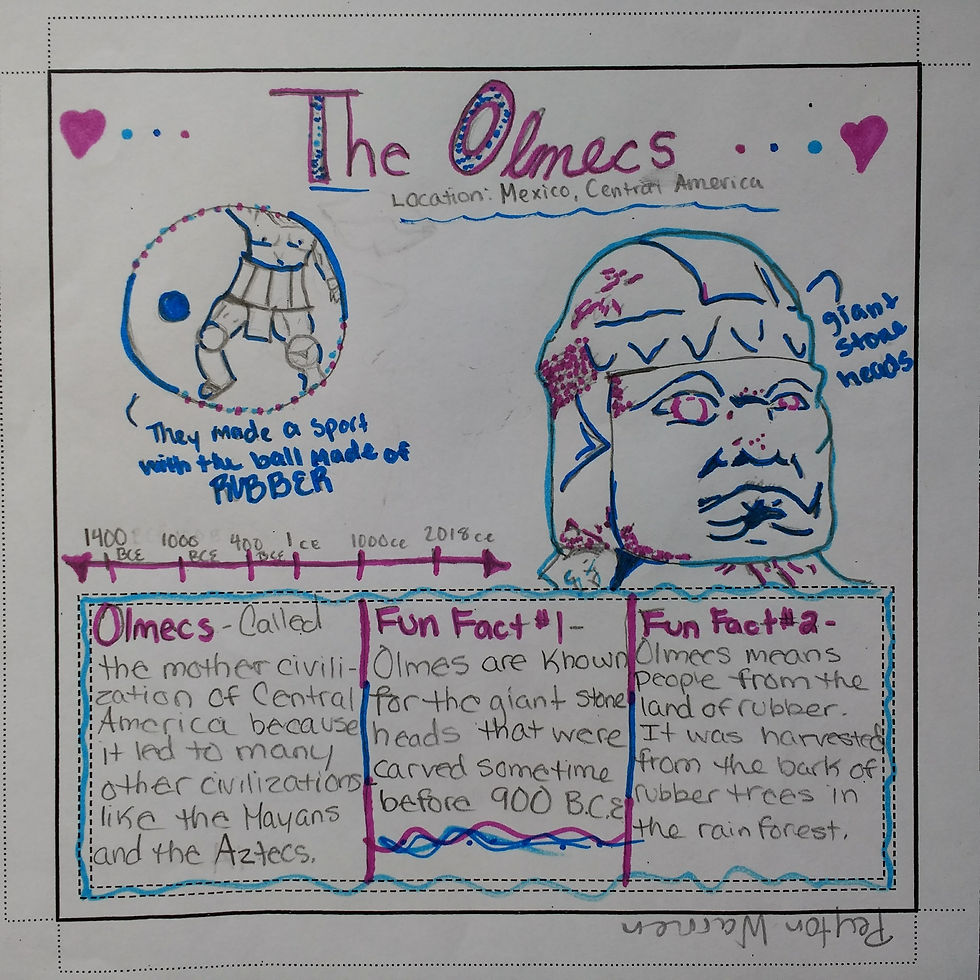 The Olmecs
Location: Mexico, Central America
giant
stone
heads
They made a sport
with the ball made of
RUBBER
1400 BCE 1000 BCE 400 BCE 1 CE 1000 CE 2018 CE
Olmecs - Called
the mother civili-
zation of Central
America because
it led to many
other civilizations
like the Mayans
and the Aztecs.
Fun Fact #1-
Olmes are known
for the giant stone
heads that were
carved sometime
before 900 B.C.E
Fun Fact #2-
Olmecs means
people from the
land of rubber.
It was harvested
from the bark of
rubber trees in
the rain forest.
Peyton Warmen